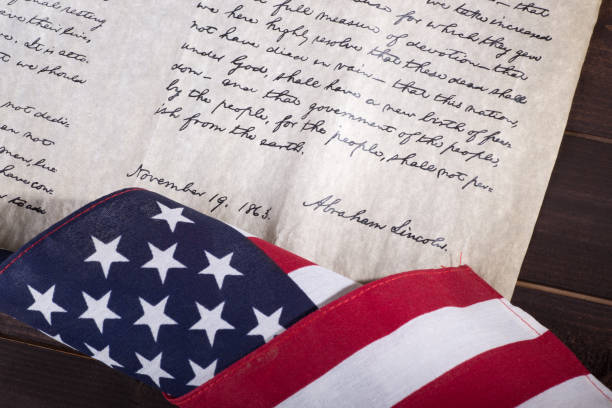 nal resting
ave their live
. It is alto
at we should
not dedi-
an not
we take increased
cause for which they gave
full measure of devotion—that
we here highly resolve that these dead shall
not have died in vain—that this nation,
under God, shall have a new birth of free-
dom—and that government of the people,
by the people, for the people, shall not per-
ish from the earth.
November 19, 1863.
Abraham Lincoln.